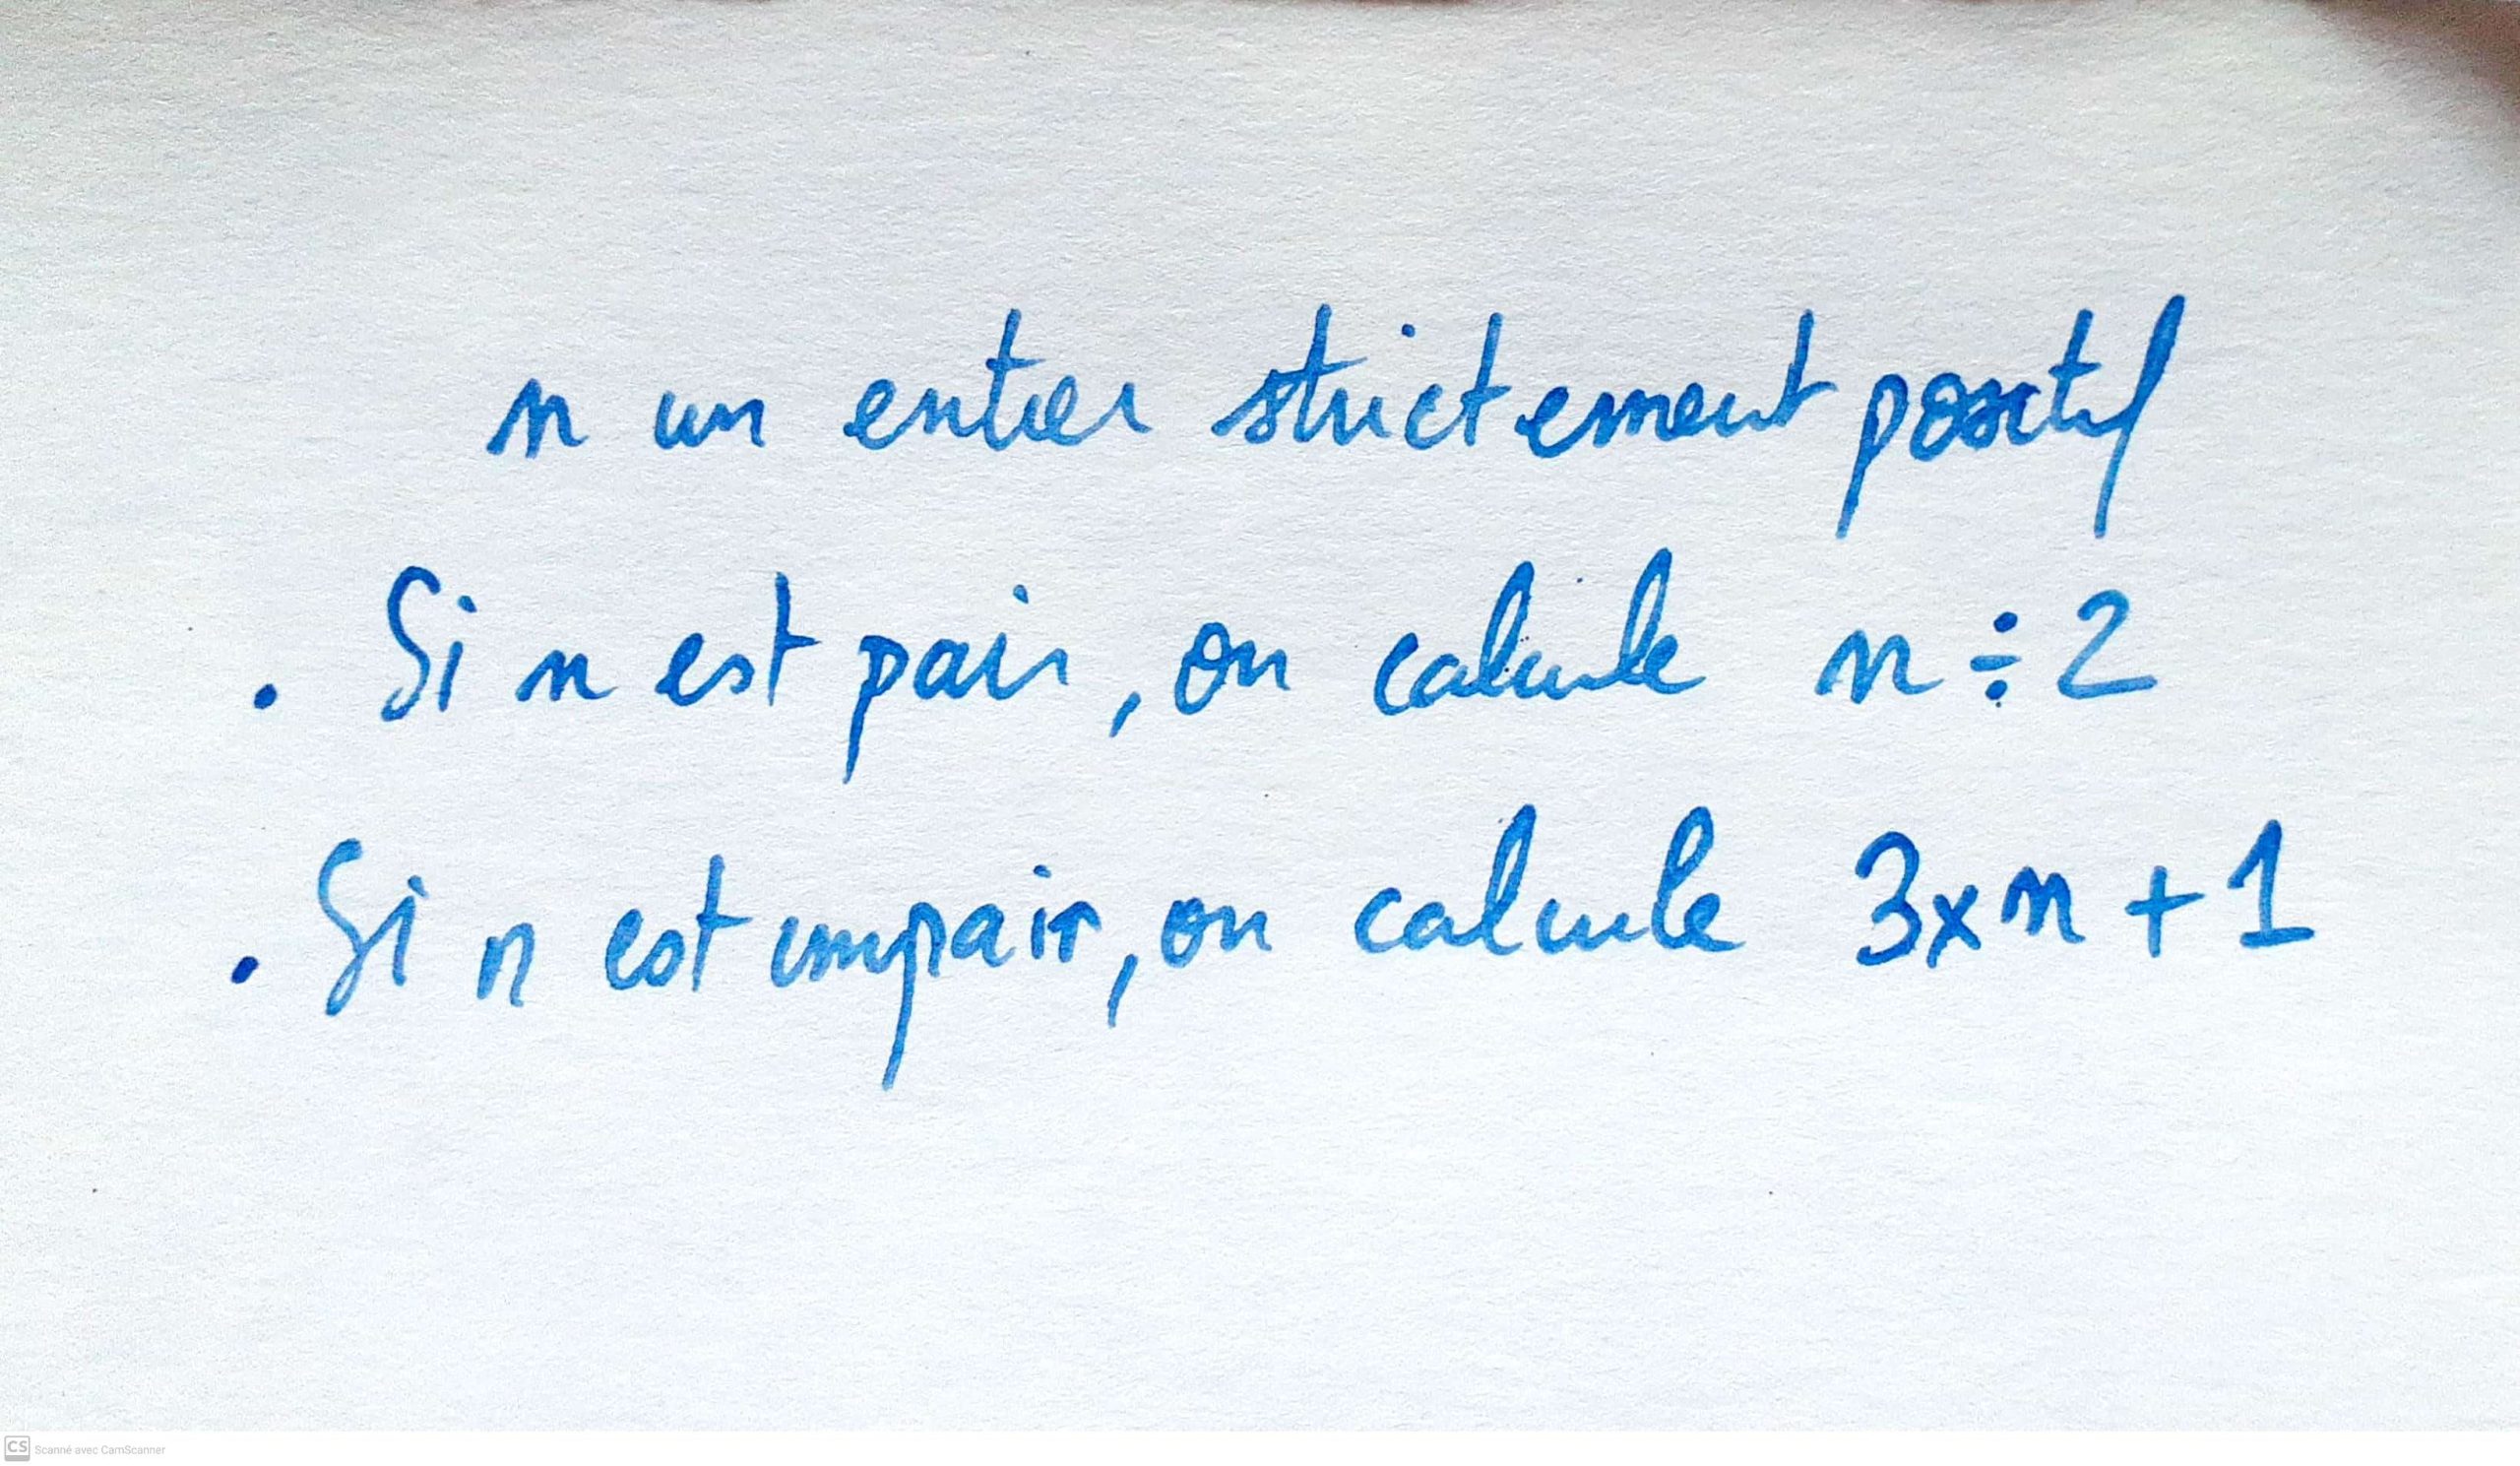 n un entier strictement positif
. Si n est pair, on calcule n ÷ 2
. Si n est impair, on calcule 3 x n + 1
CS Scanné avec CamScanner